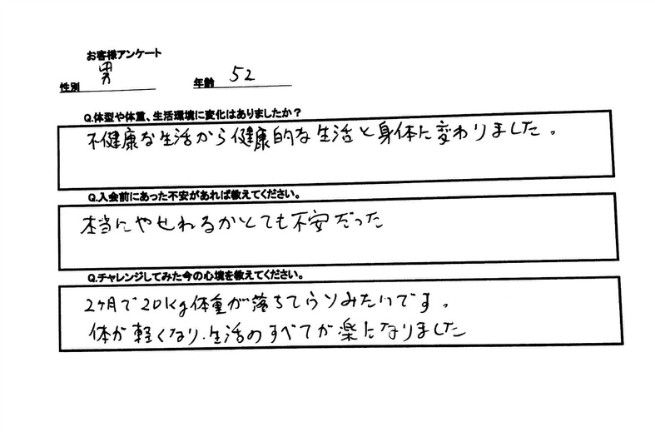 お客様アンケート
性別 男 年齢 52
Q.体型や体重、生活環境に変化はありましたか？
不健康な生活から健康的な生活と身体に変わりました。
Q.入会前にあった不安があれば教えてください。
本当にやせれるかとても不安だった
Q.チャレンジしてみた今の心境を教えてください。
2ヶ月で20kg体重が落ちてうそみたいです。
体が軽くなり、生活のすべてが楽になりました